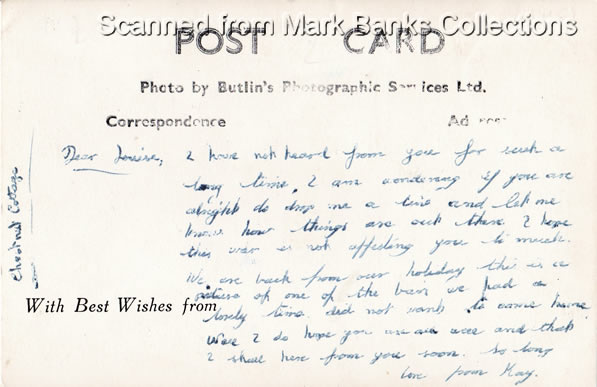 Scanned from Mark Banks Collections
POST CARD
Photo by Butlin's Photographic Services Ltd.
Correspondence Address
Chestnut Cottage
Dear Louise, I have not heard from you for such a
long time, I am wondering if you are
alright do drop me a line and let me
know how things are out there I hope
this war is not affecting you to much.
We are back from our holiday this is a
picture of one of the bars, we had a
lovely time, did not want to come home
I do hope you are and that
I shall hear from you soon. So long
love from Kay.
With Best Wishes from